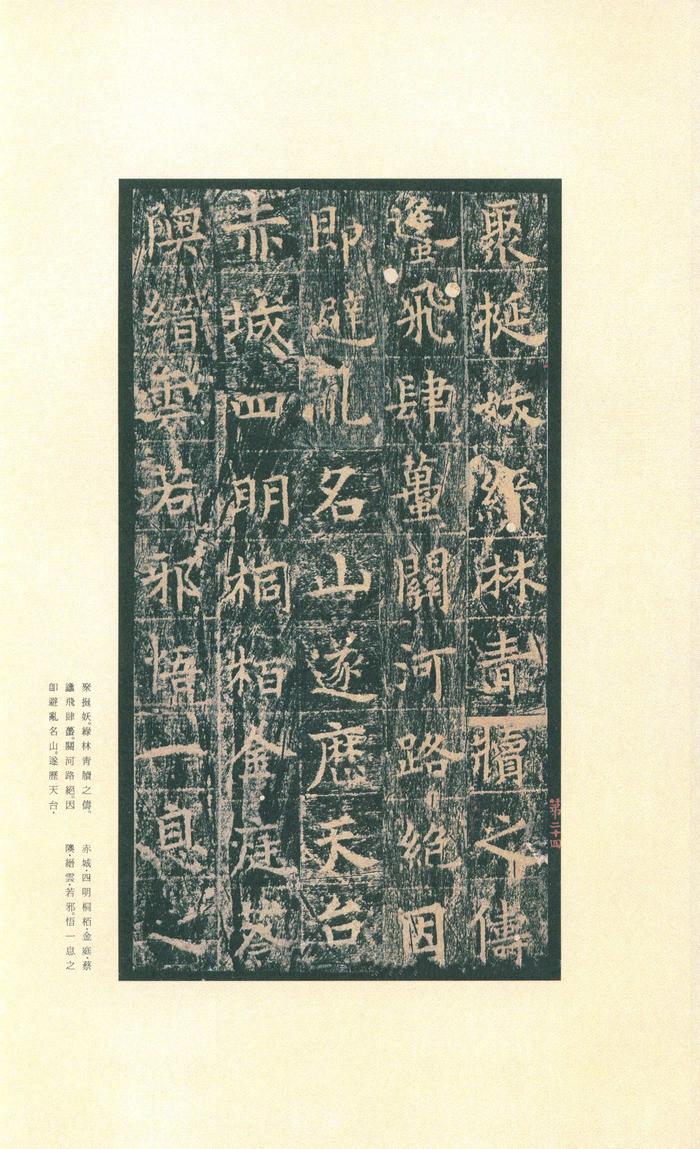 聚挻妖緑林青犢之儔
蠭飛肆蠆關河路絶因
即避亂名山遂歷天台
赤城四明桐栢金庭蔡
隩縉雲若邪悟一息之
聚挻妖。綠林青犢之儔。
蠭飛肆蠆。關河路絕。因
卽避亂名山。遂歷天台・
赤城・四明・桐栢・金庭・蔡
隩・縉雲・若邪。悟一息之